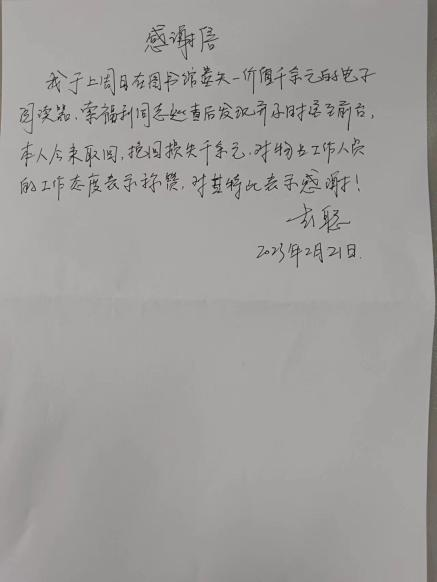 感谢信
我于上周日在图书馆丢失一价值千余元的电子
阅读器,荣福利同志巡查后发现并及时送至前台,
本人今来取回,挽回损失千余元,对物占工作人员
的工作态度表示称赞,对其特此表示感谢!
聪
2023年2月21日.